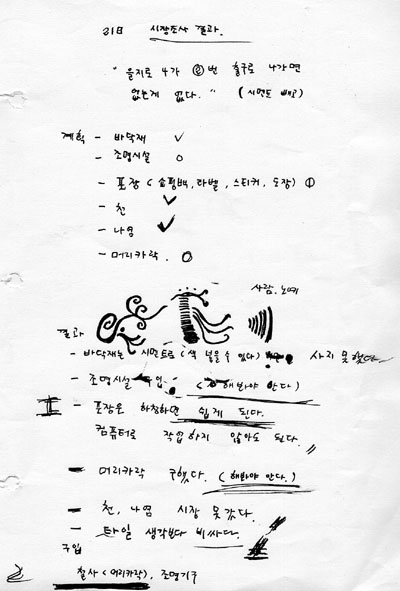 21日 시장조사 결과.
"을지로 4가 ②번 출구로 나가면
없는게 없다." (시멘트 빼고)
계획 - 바닥재 ✓
- 조명시설 o
- 포장 (쇼핑백, 라벨, 스티커, 도장)
- 천 ✓
- 나염 ✓
- 머리카락. o
사람.
결과
- 바닥재는 시멘트로 (색 넣을수 있다) 사지 못했다
- 조명시설 (해봐야 안다)
- 포장은 하청하면 쉽게 된다.
컴퓨터로 작업하지 않아도 된다.
- 머리카락 구했다. (해봐야 안다.)
- 천, 나염 시장 못갔다.
- 타일 생각보다 비싸다.
구입
철사 (머리카락), 조명기구